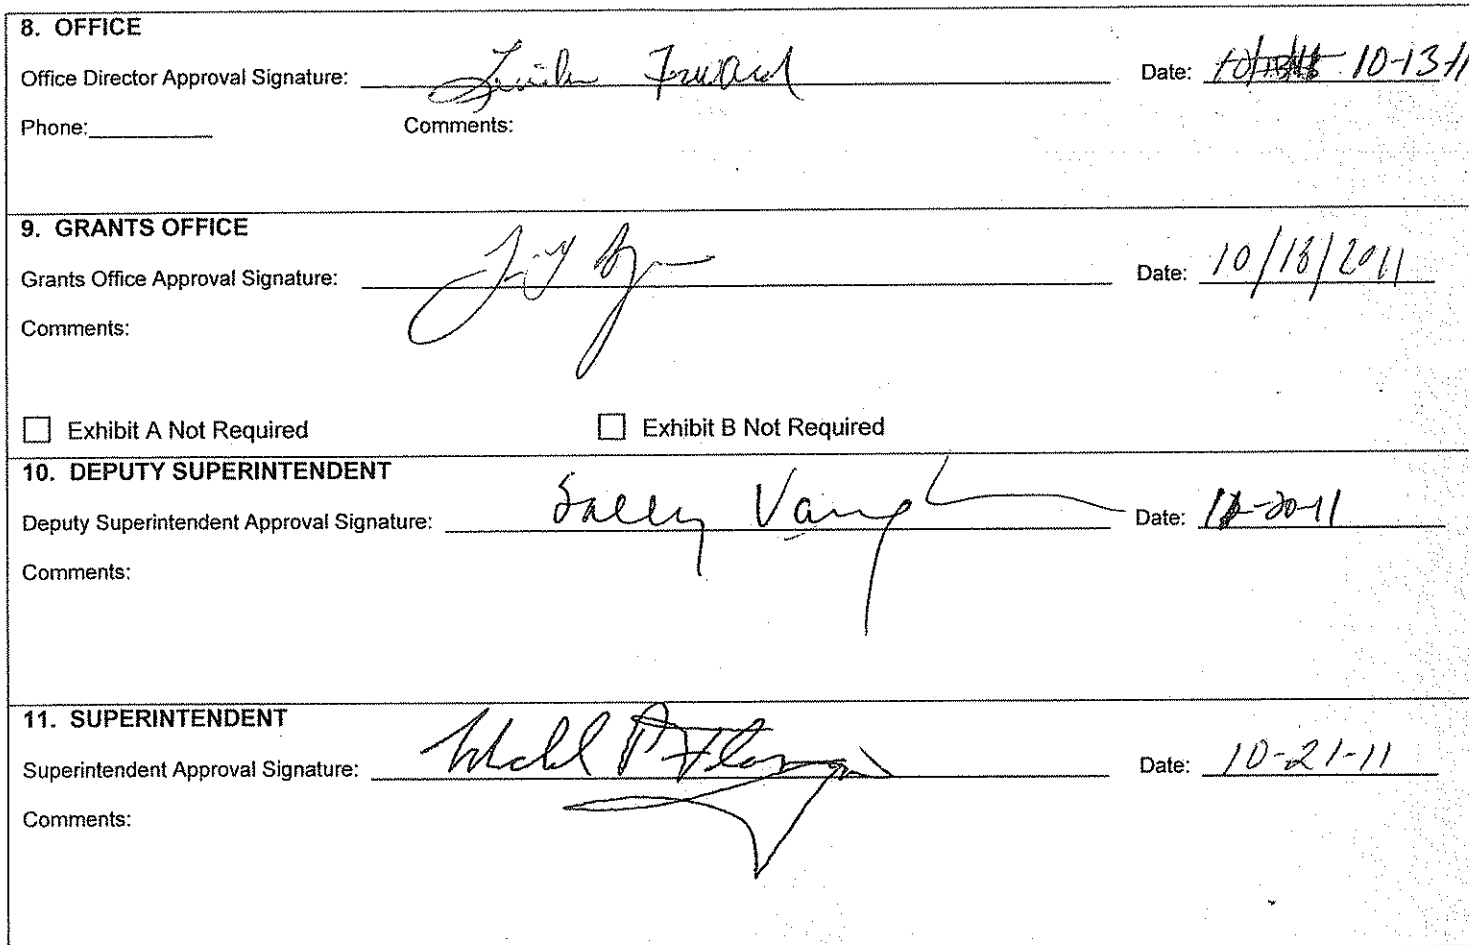 8. OFFICE
Office Director Approval Signature: Date: 10-13-11
Phone: Comments:
9. GRANTS OFFICE
Grants Office Approval Signature: Date: 10/18/2011
Comments:
Exhibit A Not Required Exhibit B Not Required
10. DEPUTY SUPERINTENDENT
Deputy Superintendent Approval Signature: Sally Date: -20-11
Comments:
11. SUPERINTENDENT
Superintendent Approval Signature: Date: 10-21-11
Comments: